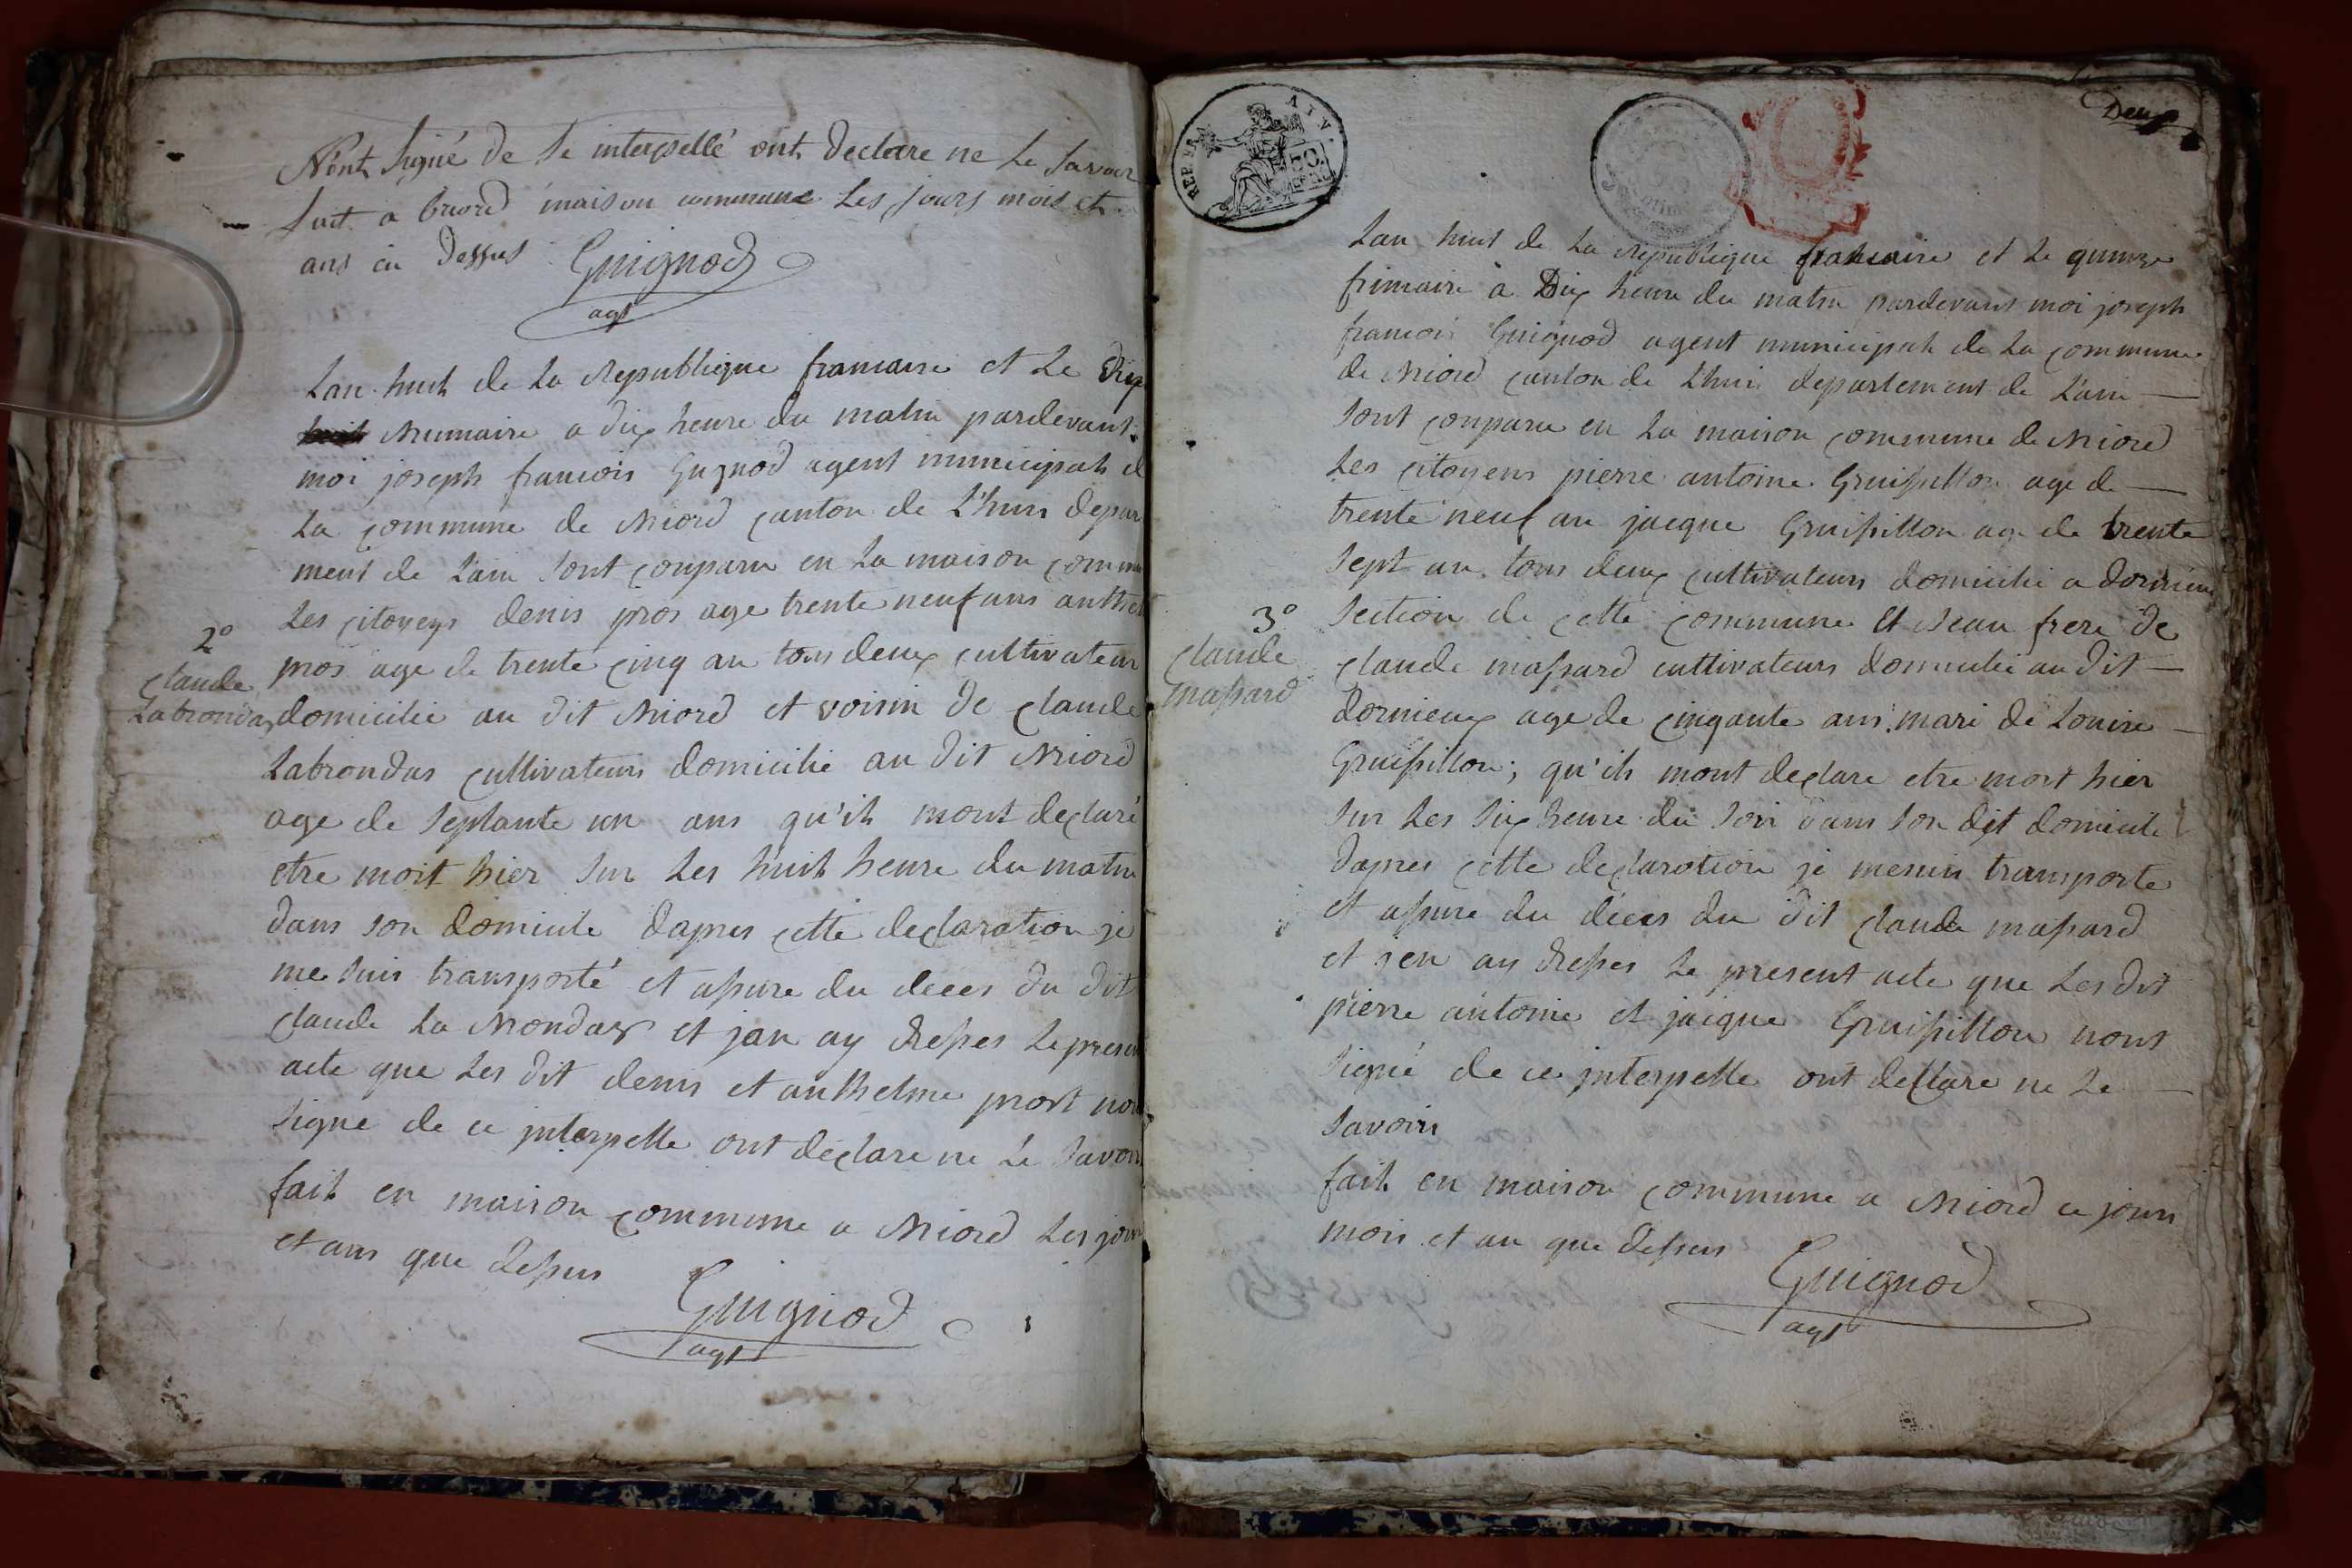 Nont Signé de Se interpellé ont Declare ne Le Savoir
fait a briord maison commune Les jours mois et
ans cu Dessus Guignod
agt
Lan huit de La Republique francaise et Le Dix
brumaire a dix heure du matin pardevant
moi joseph francois Gugnod agent municipah d
La commune de Briord canton de L'huis depar
ment de L'ain Sont conparu en La maison commu
Les citoyens denis pros age trente neuf ans anthel
2°
pros age de trente cinq an tous deux cultivateur
Claude
Labrondas
domicilie au dit Briord et voisin de Claude
Labrondas cultivateurs domicilie au dit Briord
age de Septante un ans qu'ils mont declaré
etre mort hier Sur Les huit heure du matin
dans son domicile Dapres cette declaration je
me suis transporté et assure du deces du Dit
Claude La Brondas et jan ay dresses Le presen
acte que Les dit denis et anthelme prost non
Signe de ce interpelle ont declare ne Le Savoir
fait en maison commune a Briord Les jour
et ans que dessus
Guignod
agt
REP. FRA AIN.
50
Deux
Lan huit de La Republique francaise et Le quinze
frimaire a Dix heure du matin pardevant moi joseph
francois Guignod agent municipah de La commune
de Briord canton de L'huis departement de L'ain
Sont conparu en La maison commune de Briord
Les citoyens pierre antoine Gruissillon age de
trente neuf an jacque Gruissillon age de trente
Sept an tous deux cultivateurs domicilie a dornieux
3°
Section de cette commune et Beau frere de
Claude
massard
Claude massard cultivateurs domicilie au dit
dornieux age de cinqante ans mari de Louise
Gruissillon; qu'ils mont declare etre mort hier
Sur Les Six heure du Soir dans Son dit domicile
Dapres cette declaration je mesuis transporte
et assure du deces du dit Claude massard
et jen ay dresses Le present acte que Les dit
pierre antoine et jacque Gruissillon nont
Signé de ce interpelle ont declare ne Le
Savoirs
fait en maison commune a Briord ce jours
mois et an que dessus
Guignod
agt